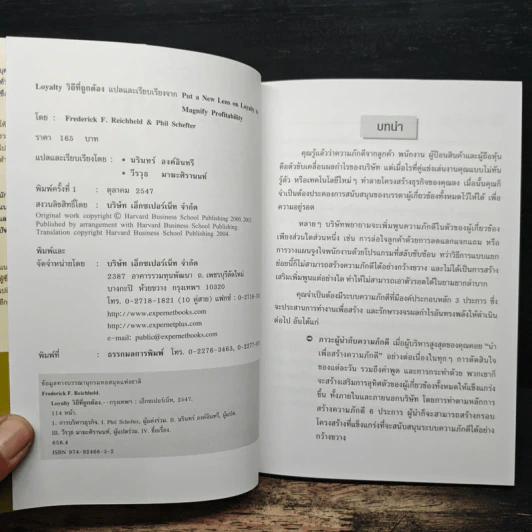 Loyalty วิธีที่ถูกต้อง แปลและเรียบเรียงจาก Put a New Lens on Loyalty to
Magnify Profitability
โดย : Frederick F. Reichheld & Phil Schefter
ราคา 165 บาท
แปลและเรียบเรียงโดย : • นรินทร์ องค์อินทรี
• วีรวุธ มาฆะศิรานนท์
พิมพ์ครั้งที่ 1 : ตุลาคม 2547
สงวนลิขสิทธิ์โดย : บริษัท เอ็กซเปอร์เน็ท จำกัด
Original work copyright © Harvard Business School Publishing 2000,2002
Published by arrangement with Harvard Business School Publishing
Translation copyright Harvard Business School Publishing 2004.
พิมพ์และ
จัดจำหน่ายโดย : บริษัท เอ็กซเปอร์เน็ท จำกัด
2387 อาคารรวมทุนพัฒนา ถ. เพชรบุรีตัดใหม่
บางกะปิ ห้วยขวาง กรุงเทพฯ 10320
โทร. 0-2718-1821 (10 คู่สาย) แฟกซ์
http://www.expernetbooks.com
http://www.expernetplus.com
e-mail: public@expernetbooks.com
พิมพ์ที่ : ธรรกมลการพิมพ์ โทร. 0-2276-3463,
ข้อมูลทางบรรณานุกรมหอสมุดแห่งชาติ
Frederick F. Reichheld.
Loyalty วิธีที่ถูกต้อง.--กรุงเทพฯ : เอ็กซเปอร์เน็ท, 2547.
114 หน้า.
1. การบริหารธุรกิจ. I. Phil Schefter, ผู้แต่งร่วม. II. นรินทร์ องค์อินทรี, ผู้แปล.
III. วีรวุธ มาฆะศิรานนท์, ผู้แปลร่วม. IV. ชื่อเรื่อง.
658.4
ISBN 974-92466-3-2
บทนำ
คุณรู้แล้วว่าความภักดีจากลูกค้า พนักงาน ผู้ป้อนสินค้าและผู้ถือหุ้น
คือตัวขับเคลื่อนผลกำไรของบริษัท แต่เมื่อไรที่คู่แข่งเล่นงานคุณแบบไม่ทัน
รู้ตัว หรือเทคโนโลยีใหม่ๆ ทำลายโครงสร้างธุรกิจของคุณลง เมื่อนั้นคุณก็
จำเป็นต้องประคองการสนับสนุนของบรรดาผู้เกี่ยวข้องทั้งหมดไว้ให้ได้ เพื่อ
ความอยู่รอด
หลายๆ บริษัทพยายามจะเพิ่มพูนความภักดีในตัวของผู้เกี่ยวข้อง
เพียงส่วนใดส่วนหนึ่ง เช่น การล่อใจลูกค้าด้วยการลดแลกแจกแถม หรือ
การวางแผนจูงใจพนักงานด้วยโปรแกรมที่สลับซับซ้อน ทว่าวิธีการแบบแยก
ย่อยนี้ก็ไม่สามารถสร้างความภักดีได้อย่างกว้างขวาง และไม่ได้เป็นการสร้าง
เสริมเพิ่มพูนแต่อย่างใด ทำให้ไม่สามารถเอาตัวรอดได้ในยามยากลำบาก
คุณจำเป็นต้องมีระบบความภักดีที่มีองค์ประกอบหลัก 3 ประการ ซึ่ง
จะประสานการทำงานเพื่อสร้าง และรักษาวงจรผลกำไรอันทรงพลังให้ดำเนิน
ต่อไป อันได้แก่
ภาวะผู้นำกับความภักดี เมื่อผู้บริหารสูงสุดของคุณคอย “นำ
เพื่อสร้างความภักดี” อย่างต่อเนื่องในทุกๆ การตัดสินใจ
ของแต่ละวัน รวมถึงคำพูด และการกระทำด้วย พวกเขาก็
จะสร้างเสริมการอุทิศตัวของผู้เกี่ยวข้องทั้งหมดให้แข็งแกร่ง
ขึ้น ทั้งภายในและภายนอกบริษัท โดยการทำตามหลักการ
สร้างความภักดี 6 ประการ ผู้นำก็จะสามารถสร้างกรอบ
โครงสร้างที่แข็งแกร่งที่จะสนับสนุนระบบความภักดีได้อย่าง
กว้างขวาง